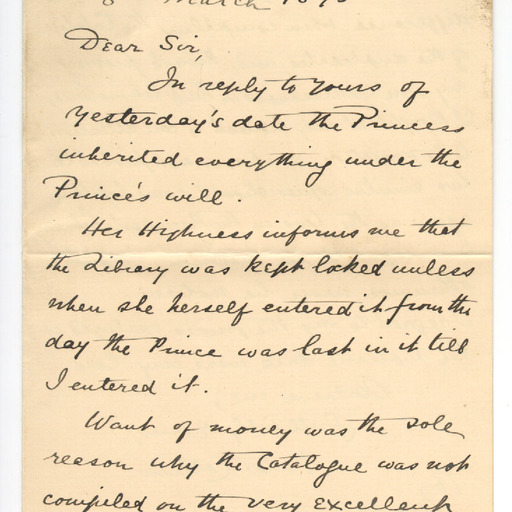 March
Dear Sir,
In reply to yours of
yesterday's date the Princess
inherited everything under the
Prince's will.
Her Highness informs me that
the Library was kept locked unless
when she herself entered it from the
day the Prince was last in it till
I entered it.
Want of money was the sole
reason why the Catalogue was not
compiled on the very excellent